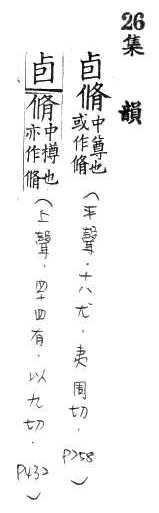 26集韻
卣脩中尊也或作脩(平聲．十八尤．夷周切．P258)
卣脩中樽也亦作脩(上聲．四十四有．以九切．P432)